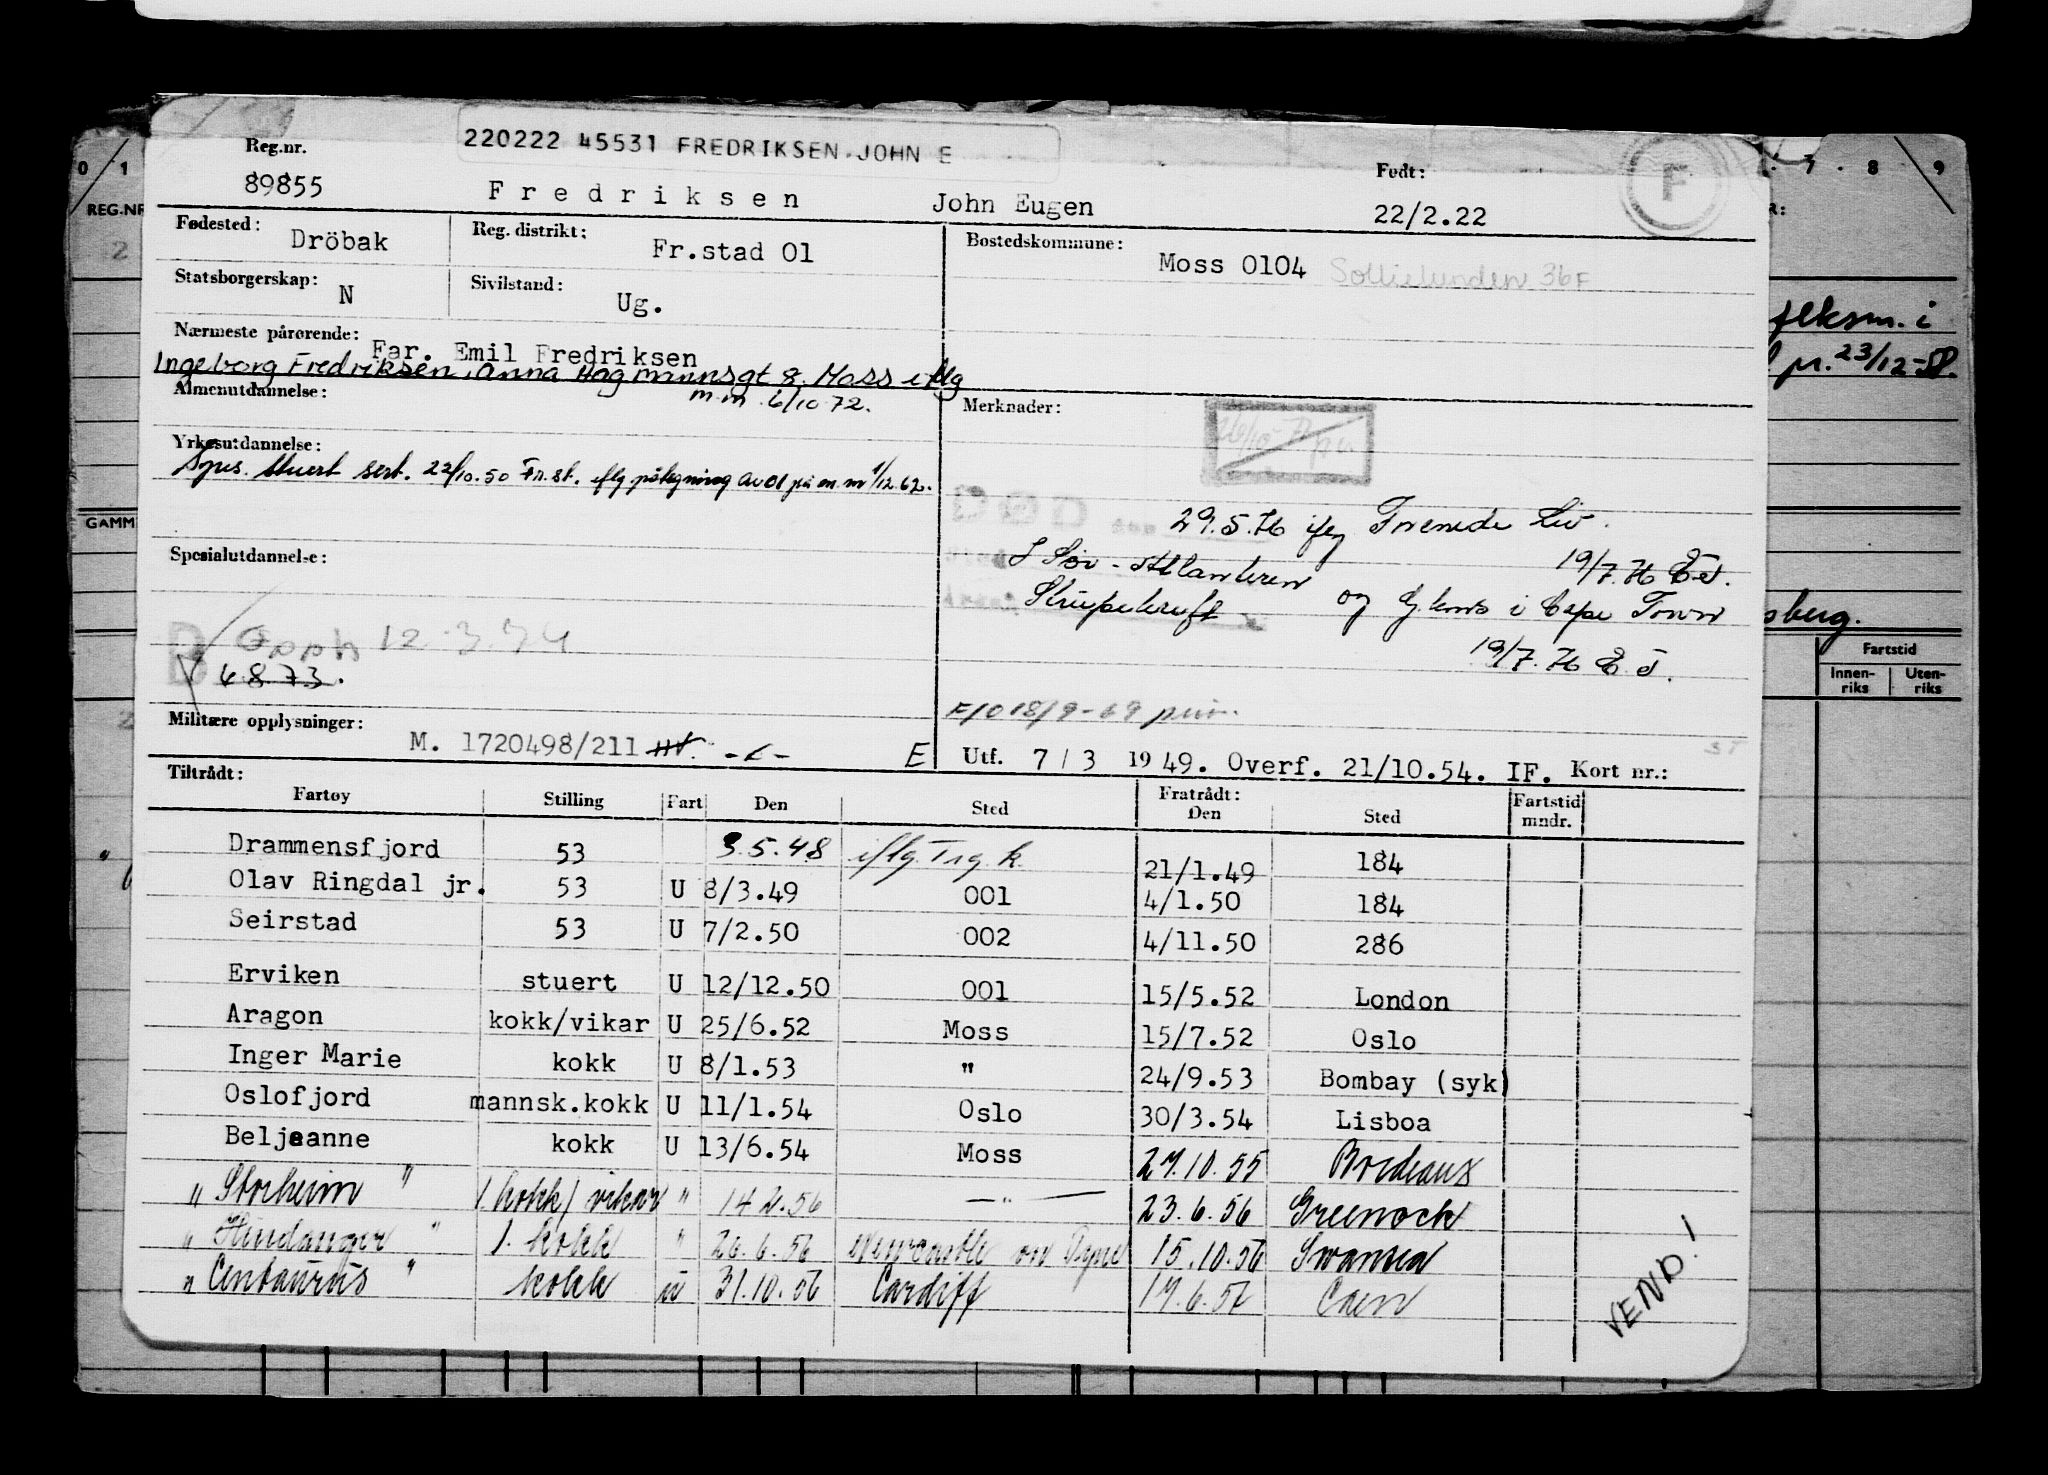 220222 45531 FREDRIKSEN JOHN E
Reg.nr. 89855
Fredriksen John Eugen
Født: 22/2.22
F
Fødested: Dröbak
Reg. distrikt: Fr.stad 01
Bostedskommune: Moss 0104 Sollielunden 36F
Statsborgerskap: N
Sivilstand: Ug.
Nærmeste pårørende: Far. Emil Fredriksen
Ingeborg Fredriksen, Anna Hagmannsgt 8. Moss iflg
m.m. 6/10 72.
Almenutdannelse:
Merknader:
Yrkesutdannelse:
stuert sert. 22/10.50 Fr.st. iflg påtegning av OI på en m 1/12.62.
DØD
29.5.76 iflg Forenede Liv.
19/7.76 E.T.
I Sør-Atlanteren
Strupekreft og lj. kons i Cape Town
19/7.76 E.T.
Spesialutdannelse:
B Opph 12.3.74
6873.
F/O 18/9-69
Militære opplysninger: M. 1720498/211 E
Utf. 7/3 1949. Overf. 21/10.54. IF. Kort nr.:
Tiltrådt: Fratrådt:
Fartøy Stilling Fart Den Sted Den Sted Fartstid mndr.
Drammensfjord 53 3.5.48 iflg. Trg.k. 21/1.49 184
Olav Ringdal jr. 53 U 8/3.49 001 4/1.50 184
Seirstad 53 U 7/2.50 002 4/11.50 286
Erviken stuert U 12/12.50 001 15/5.52 London
Aragon kokk/vikar U 25/6.52 Moss 15/7.52 Oslo
Inger Marie kokk U 8/1.53 " 24/9.53 Bombay (syk)
Oslofjord mannsk.kokk U 11/1.54 Oslo 30/3.54 Lisboa
Beljeanne kokk U 13/6.54 Moss 27.10.55 Bordeaux
" Storheim " 1. kokk/vikar " 14.2.56 — " — 23.6.56 Greenock
" Hindanger " 1. kokk " 26.6.56 Newcastle on Tyne 15.10.56 Swansea
" Centaurus " kokk u 31.10.56 Cardiff 17.6.57 Caen
VEND!
0 1
7 8 9
REG.NR
2
flksm. i
pr. 23/12-58.
GAMM
sberg.
Fartstid
Innen-riks Uten-riks